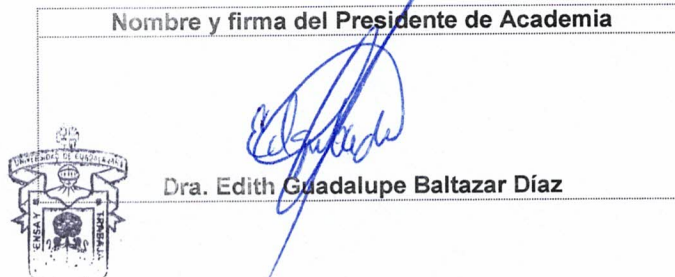 Nombre y firma del Presidente de Academia
Dra. Edith Guadalupe Baltazar Díaz
UNIVERSIDAD DE GUADALAJARA
TRABAJA